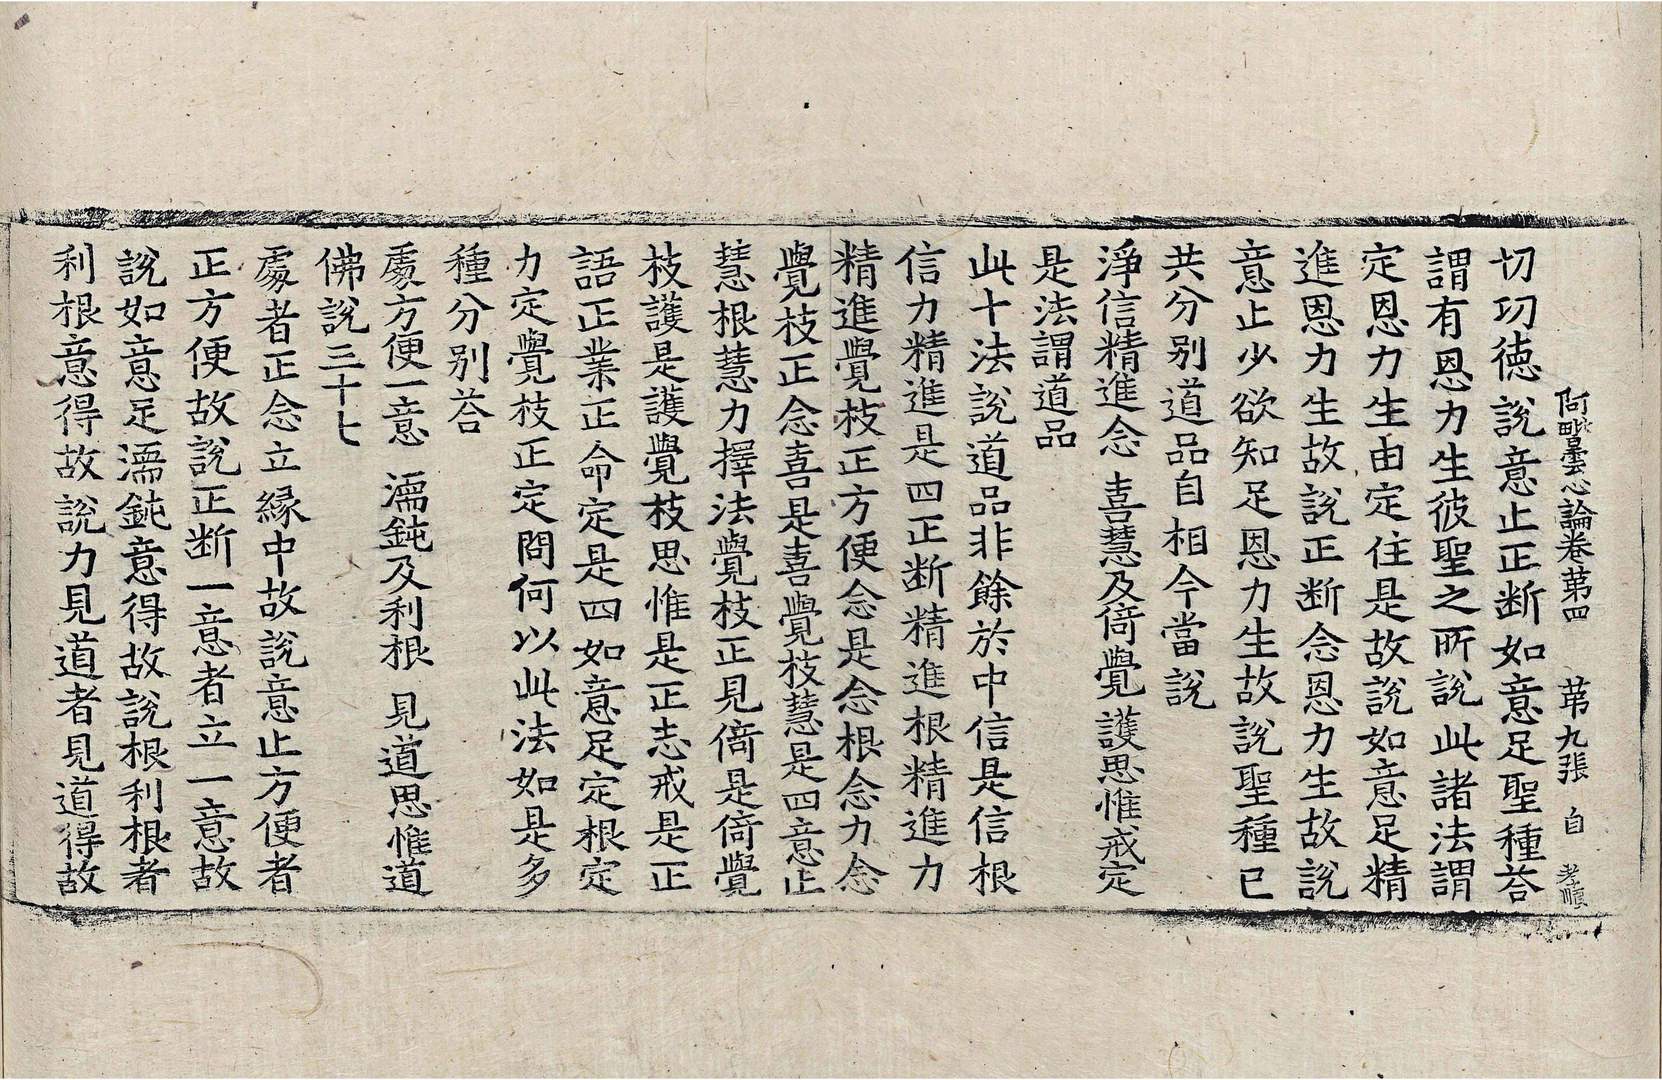 阿毗曇心論卷第四 苐九張 自 孝順
切功徳說意止正斷如意足聖種荅
謂有恩力生彼聖之所說此諸法謂
定恩力生由定住是故說如意足精
進恩力生故說正斷念恩力生故說
意止少欲知足恩力生故說聖種已
共分别道品自相今當說
淨信精進念 喜慧及倚覺 護思惟戒定
是法謂道品
此十法說道品非餘於中信是信根
信力精進是四正斷精進根精進力
精進覺枝正方便念是念根念力念
覺枝正念喜是喜覺枝慧是四意止
慧根慧力擇法覺枝正見倚是倚覺
枝護是護覺枝思惟是正志戒是正
語正業正命定是四如意足定根定
力定覺枝正定問何以此法如是多
種分别荅
處方便一意 濡鈍及利根 見道思惟道
佛說三十七
處者正念立縁中故說意止方便者
正方便故說正斷一意者立一意故
說如意足濡鈍意得故說根利根者
利根意得故說力見道者見道得故